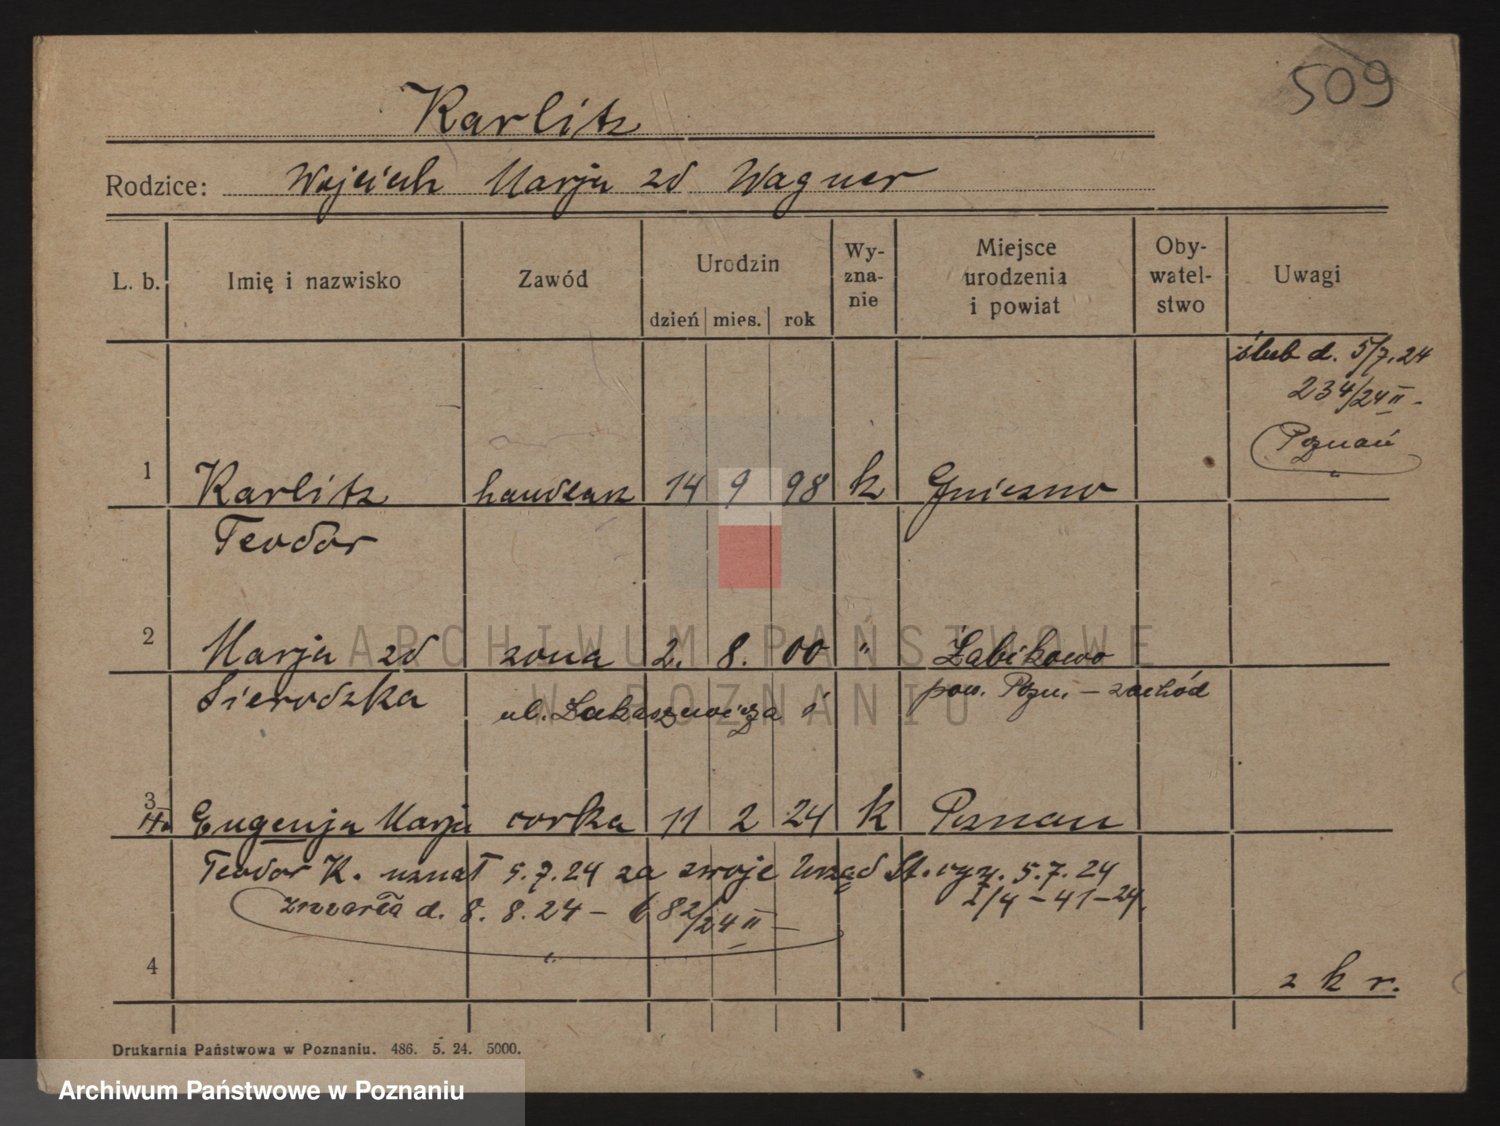 509
Karlitz
Rodzice: Wojciech Marja zd Wagner
L. b. Imię i nazwisko Zawód Urodzin dzień mies. rok Wy-zna-nie Miejsce urodzenia i powiat Oby-watel-stwo Uwagi
ślub d. 5/7.24
234/24 II -
Poznań
1 Karlitz handlarz 14 9 98 k Gniezno
Teodor
2 Marja zd żona 2. 8. 00 " Żabikowo
Sierodzka pow. Pozn. - zachód
ul. Łukaszewicza
3 Eugenja Marja corka 11 2 24 k Poznan
Teodor K. uznał 5.7.24 za swoje Urząd St. cyw. 5.7.24
zmarła d. 8. 8. 24 - 682/24 II - 2/4-41-24.
4 z k r.
Drukarnia Państwowa w Poznaniu. 486. 5. 24. 5000.
ARCHIWUM PAŃSTWOWE
W POZNANIU
Archiwum Państwowe w Poznaniu